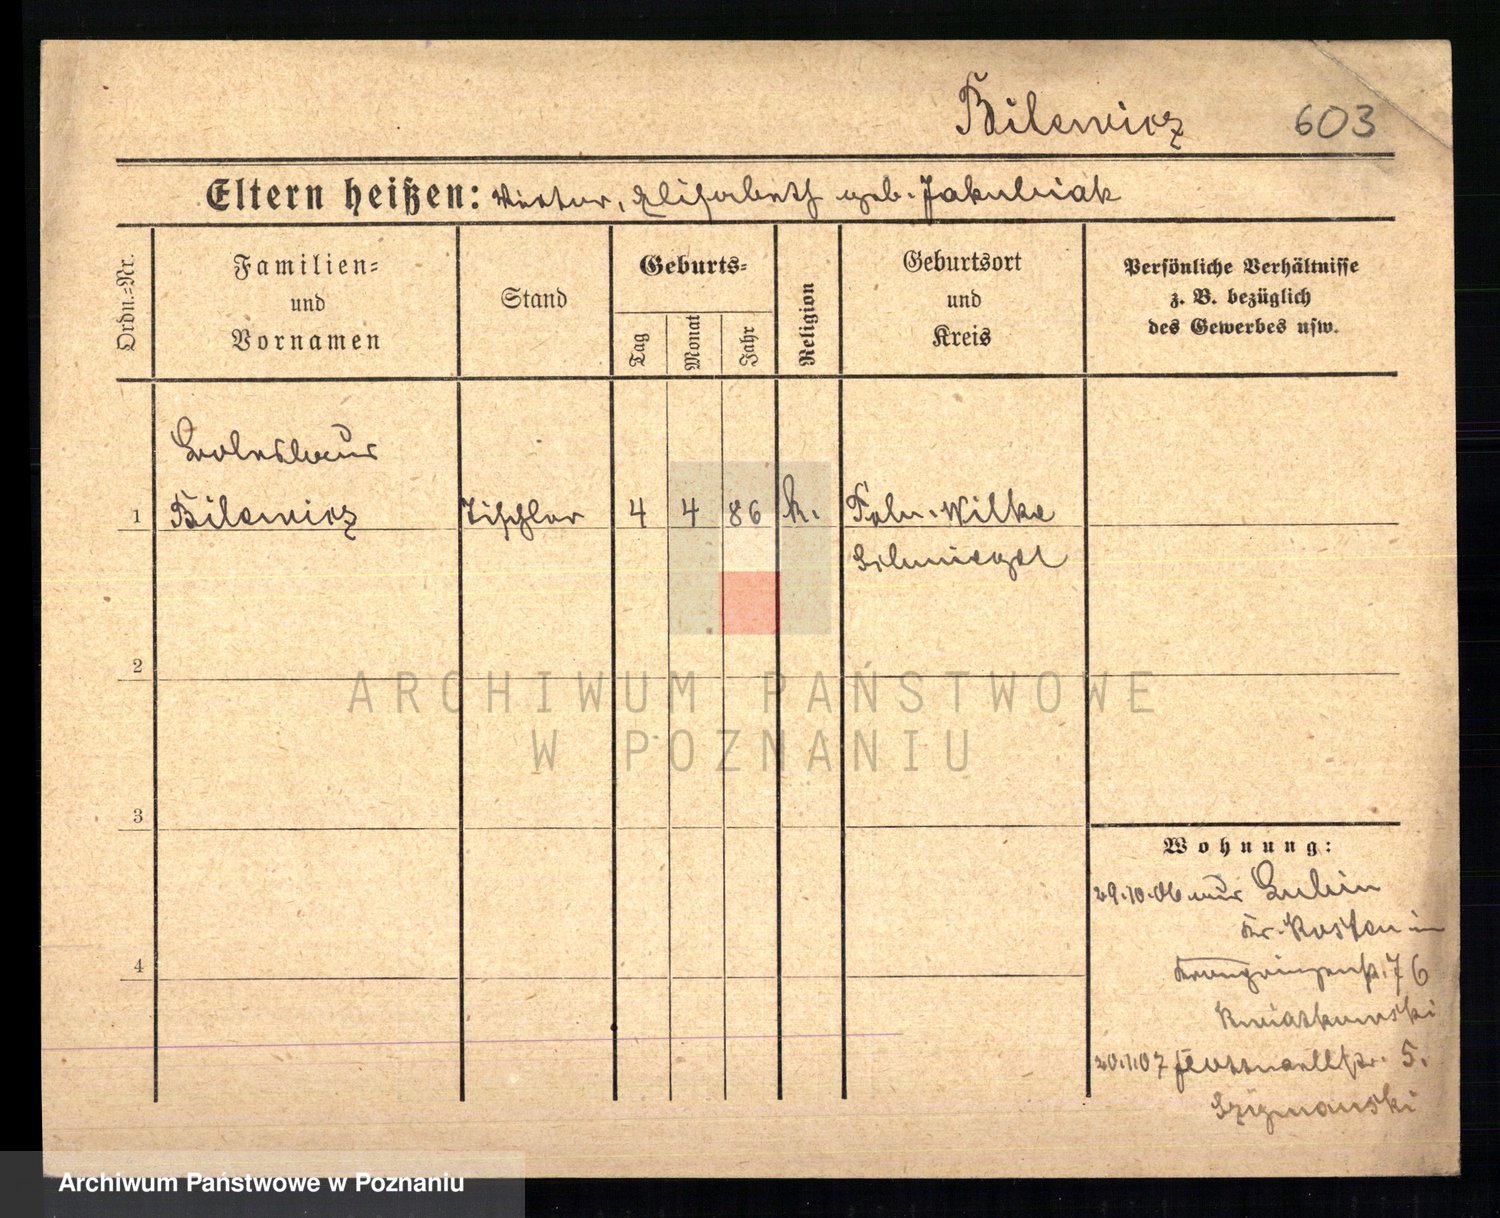 Bilewicz 603
Eltern heißen: Victor, Elisabeth geb. Jakubiak
Ordn.-Nr.
Familien-
und
Vornamen
Stand
Geburts-
Tag
Monat
Jahr
Religion
Geburtsort
und
Kreis
Persönliche Verhältnisse
z. B. bezüglich
des Gewerbes usw.
Boleslaus
1 Bilewicz Tischler 4 4 86 k. Poln. Wilke
Schmiegel
2
ARCHIWUM PAŃSTWOWE
W POZNANIU
3
4
Wohnung:
29.10.06 aus Lubin
Kr. Kosten in
Kronprinzenstr. 76
Kwiatkowski
20.1.07 5.
Szymanski
Archiwum Państwowe w Poznaniu